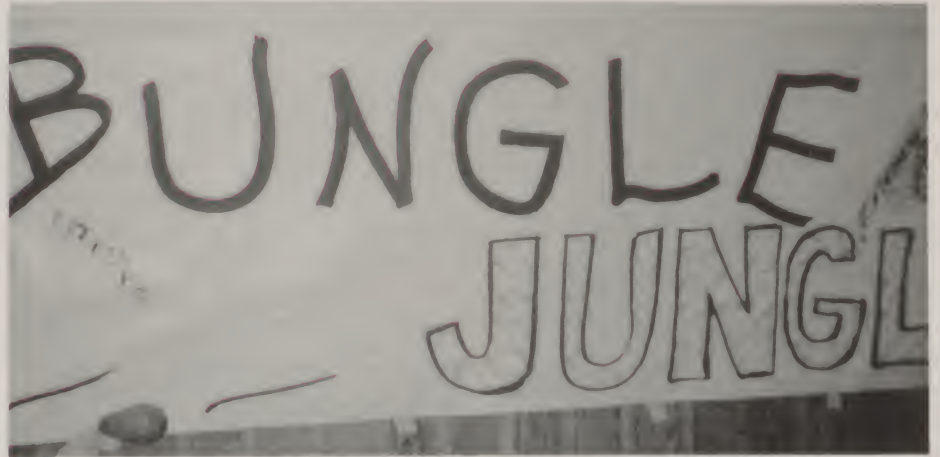 BUNGLE
JUNGL